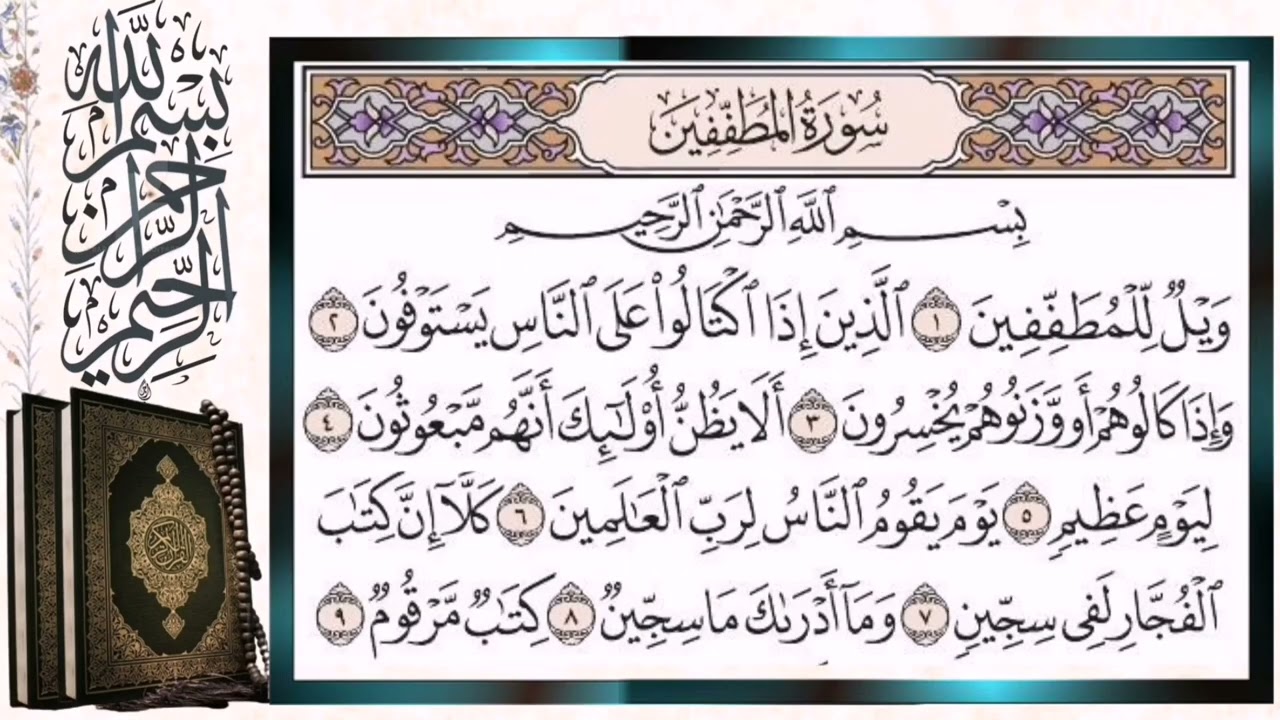 بِسْمِ اللَّهِ الرَّحْمَنِ الرَّحِيمِ
سُورَةُ المُطَفِّفِينَ
بِسْمِ ٱللَّهِ ٱلرَّحْمَٰنِ ٱلرَّحِيمِ
وَيْلٌ لِّلْمُطَفِّفِينَ ١ ٱلَّذِينَ إِذَا ٱكْتَالُوا۟ عَلَى ٱلنَّاسِ يَسْتَوْفُونَ ٢
وَإِذَا كَالُوهُمْ أَو وَّزَنُوهُمْ يُخْسِرُونَ ٣ أَلَا يَظُنُّ أُو۟لَٰٓئِكَ أَنَّهُم مَّبْعُوثُونَ ٤
لِيَوْمٍ عَظِيمٍ ٥ يَوْمَ يَقُومُ ٱلنَّاسُ لِرَبِّ ٱلْعَٰلَمِينَ ٦ كَلَّآ إِنَّ كِتَٰبَ
ٱلْفُجَّارِ لَفِى سِجِّينٍ ٧ وَمَآ أَدْرَىٰكَ مَا سِجِّينٌ ٨ كِتَٰبٌ مَّرْقُومٌ ٩